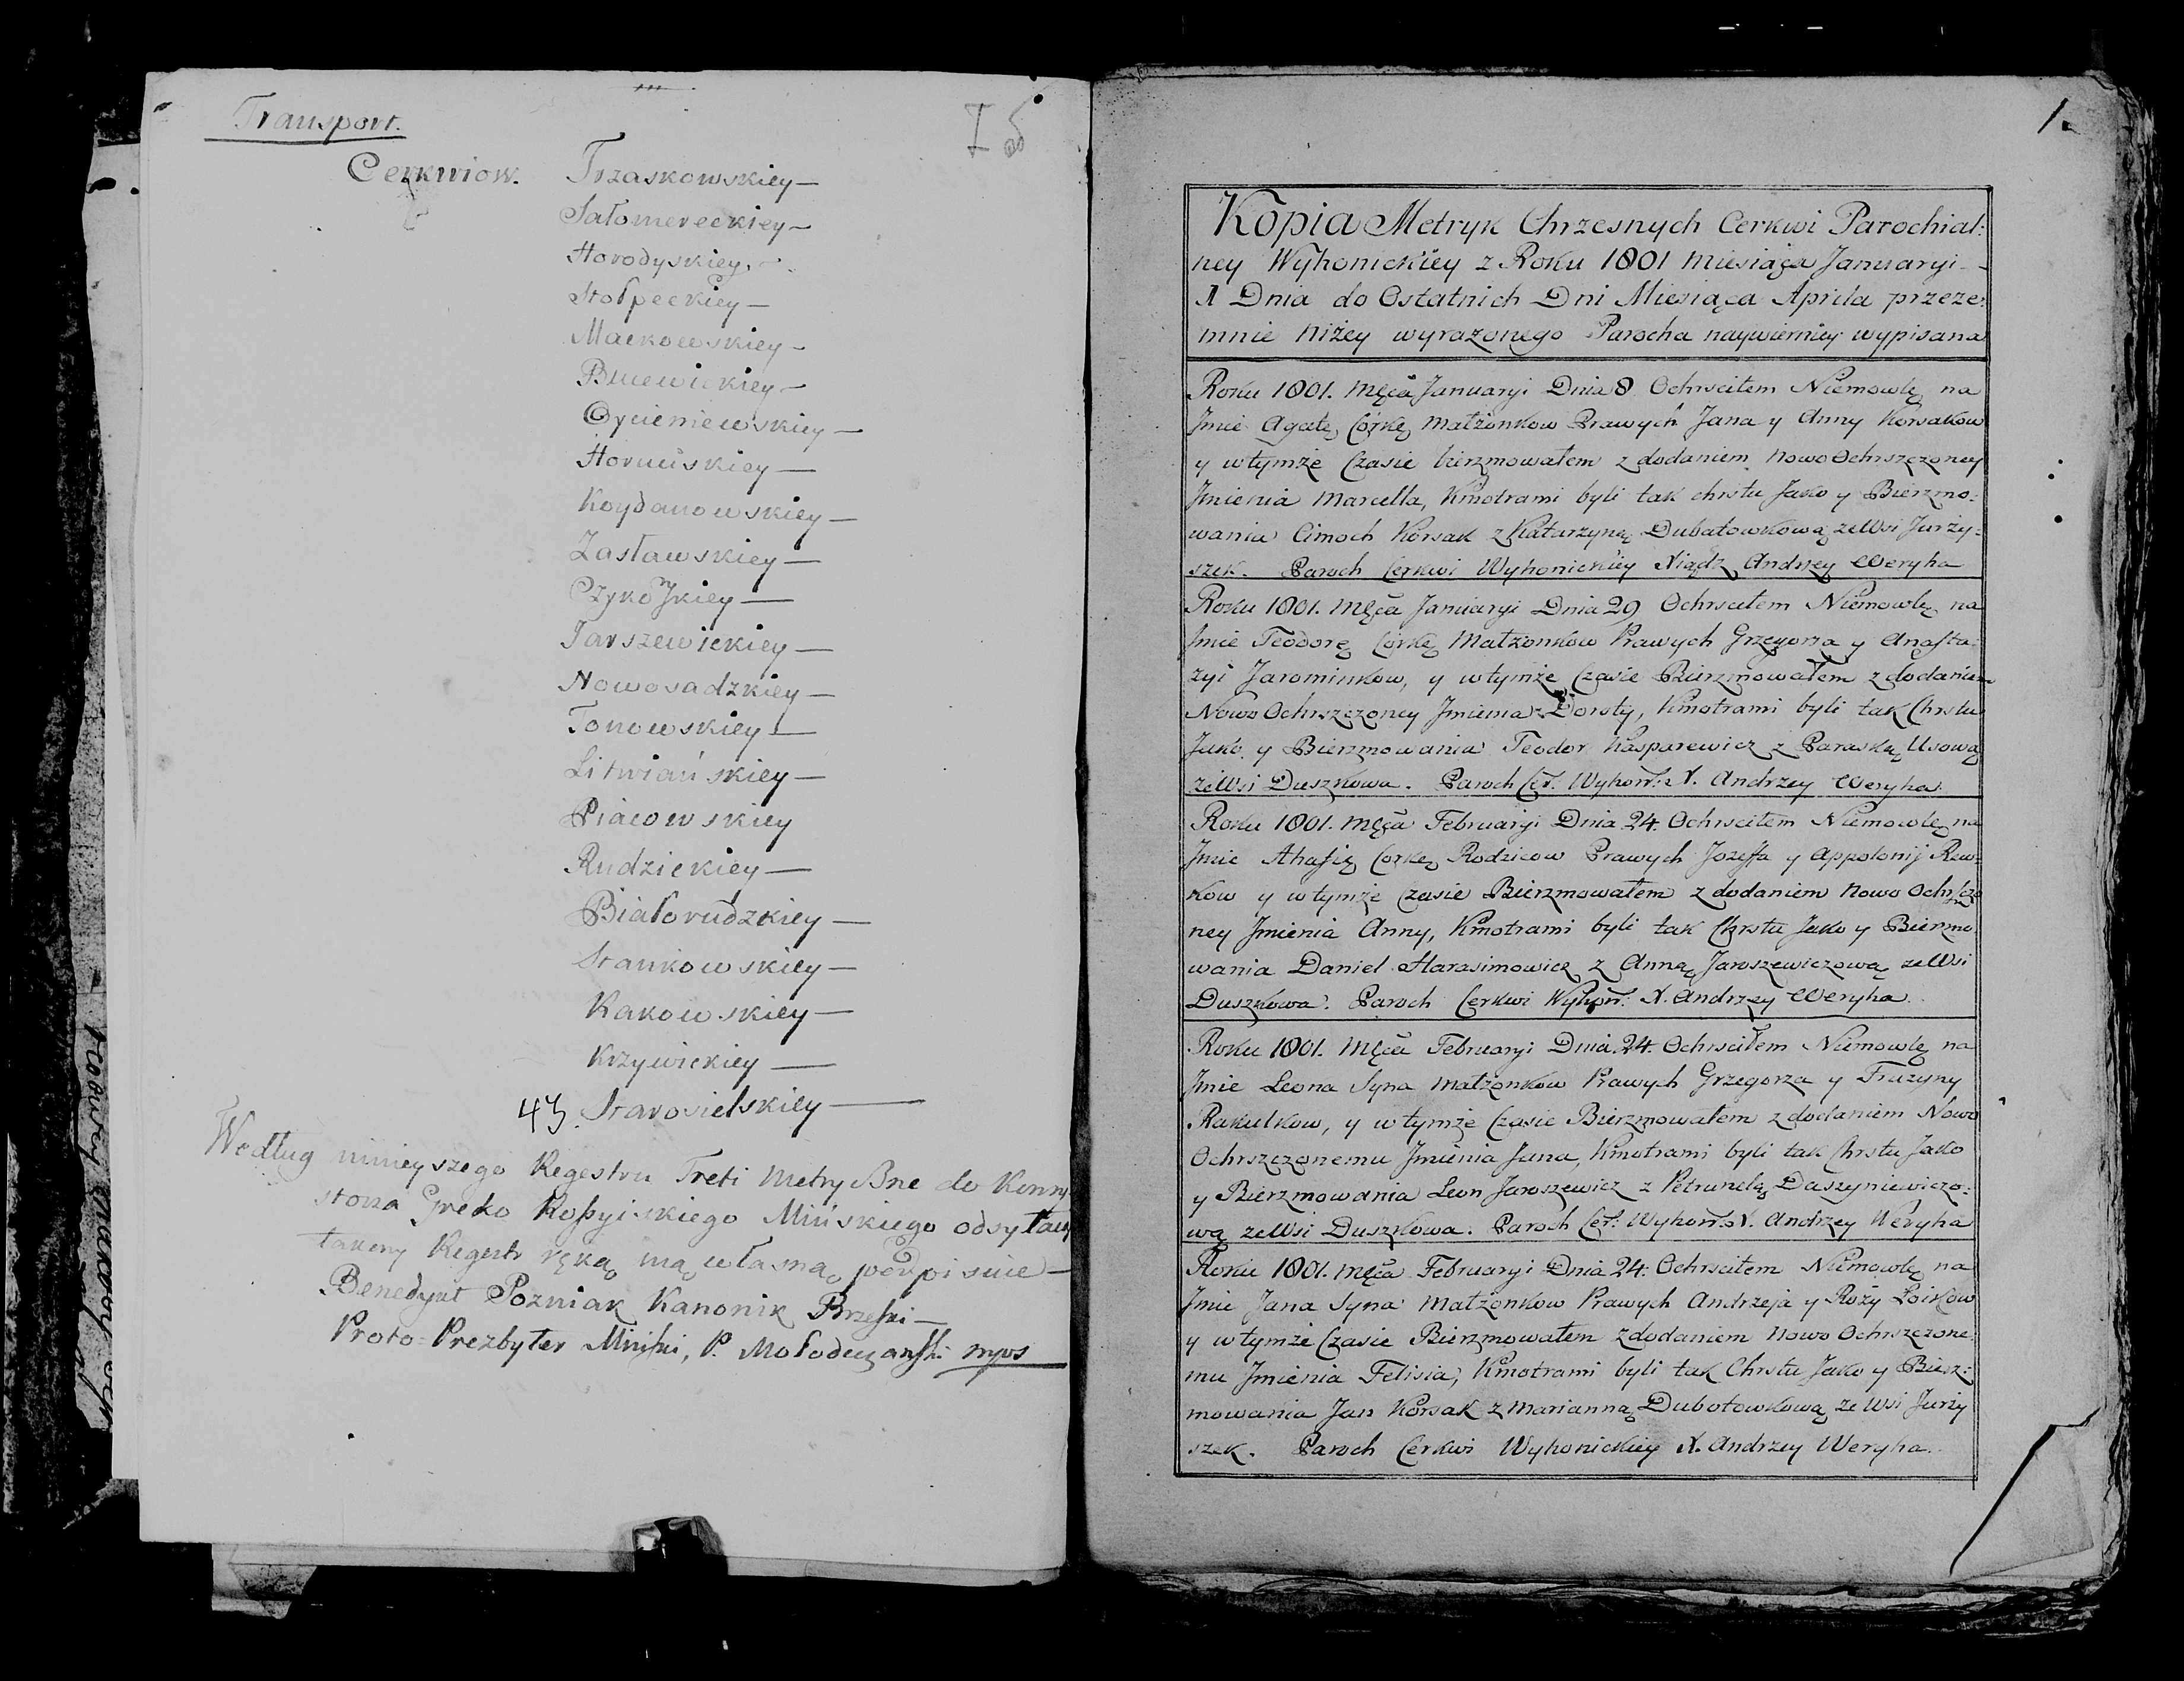 Transport.
Cerkwiow. Trzaskowskiey —
Sałomereckiey —
Horodyskiey. —
Stołpeckiey —
Mackowskiey —
Buiewickiey —
Oycieniewskiey —
Hornuskiey —
Koydanowskiey —
Zasławskiey —
Jarszewickiey —
Nowosadzkiey —
Tonowskiey —
Litwiańskiey —
Piaiowskiey
Rudzickiey —
Białorudzkiey —
Stankowskiey —
Rakowskiey —
Krzywickiey —
43. Starosielskiey —
Według ninieyszego Regestru Treti Metry Bne do Konny
storza Greko Roßyiskiego Mińskiego odsyłaiąc
takowy Regestr ręką mą własną podpisuie —
Benedykt Pozniak Kanonik Brzeski —
Proto=Prezbyter Miński, P. Mołodeczański mps
1.
Kopia Metryk Chrzesnych Cerkwi Parochial:
ney Wyhonickiey z Roku 1801 Miesiąca Januaryi -
1 Dnia do Ostatnich Dni Miesiąca Aprila przeze:
mnie niżey wyrażonego Parocha naywierniey wypisana
Roku 1801. Męca Januaryi Dnia 8 Ochrsciłem Niemowlę na
Jmie Agatę Corkę Małżonkow Prawych Jana y Anny Korsakow
y w tymże Czasie bierzmowałem z dodaniem Nowo Ochrszczoney
Jmienia Marcella, Kmotrami byli tak chrstu Jako y Bierzmo:
wania Cimoch Korsak z Katarzyną Dubatowkową ze Wsi Jurży:
szek. Paroch Cerkwi Wyhonickiey Xiądz Andrzey Weryha
Roku 1801. Męca Januaryi Dnia 29 Ochrsciłem Niemowlę na
Jmie Teodorę Corkę Małżonkow Prawych Grzegorza y Anasta:
zyi Jarominkow, y w tymże Czasie Bierzmowałem z dodaniem
Nowo Ochrszczoney Jmienia Doroty, Kmotrami byli tak Chrstu
Jako y Bierzmowania Teodor Kasparewicz z Paraską Usową
ze Wsi Duszkowa. Paroch Cer. Wyhon: X. Andrzey Weryha.
Roku 1801. Męca Februaryi Dnia 24. Ochrsciłem Niemowlę na
Jmie Ahafię Corkę Rodzicow Prawych Jozeffa y Appolonij Rew:
kow y w tymże Czasie Bierzmowałem z dodaniem Nowo Ochrszczo
ney Jmienia Anny, Kmotrami byli tak Chrstu Jako y Bierzmo
wania Daniel Harasimowicz z Anną Jaroszewiczową ze Wsi
Duszkowa. Paroch Cerkwi Wyhon: X. Andrzey Weryha.
Roku 1801. Męca Februaryi Dnia 24. Ochrsciłem Niemowlę na
Jmie Leona Syna Małżonkow Prawych Grzegorza y Fruzyny
Rakulkow, y w tymże Czasie Bierzmowałem z dodaniem Nowo
Ochrszczonemu Jmienia Jana, Kmotrami byli tak Chrstu Jako
y Bierzmowania Leon Jaroszewicz z Petrunelą Daszyniewiczo:
wą ze Wsi Duszkowa. Paroch Cer: Wyhon: X. Andrzey Weryha
Roku 1801. Męca Februaryi Dnia 24. Ochrsciłem Niemowlę na
Jmie Jana Syna Małżonkow Prawych Andrzeja y Roży Loikow
y w tymże Czasie Bierzmowałem z dodaniem Nowo Ochrszczone
mu Jmienia Felisia, Kmotrami byli tak Chrstu Jako y Bierz:
mowania Jan Korsak z Marianną Dubotowkową ze Wsi Jurży
szek. Paroch Cerkwi Wyhonickiey X. Andrzey Weryha.